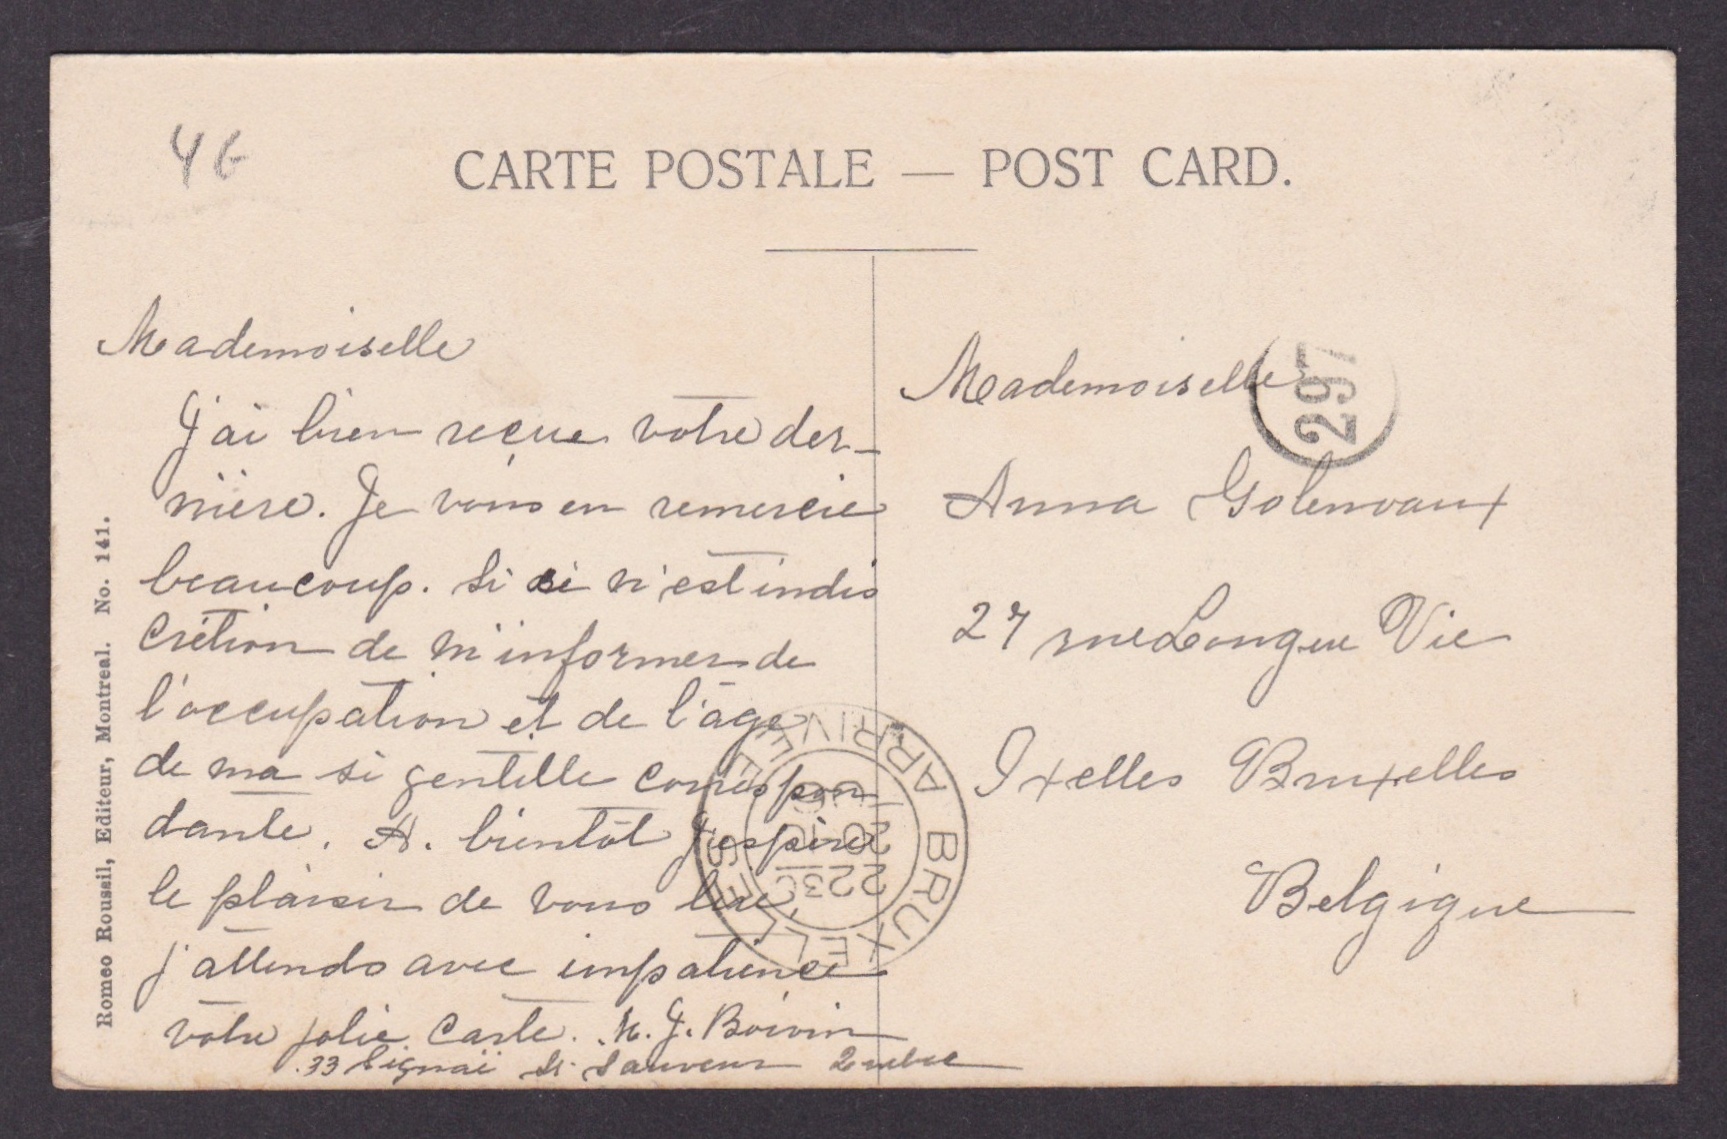 4 G
CARTE POSTALE — POST CARD.
Mademoiselle
J'ai bien reçue votre der-
nière. Je vous en remercie
beaucoup. Si si n'est indis
crétion de m'informer de
l'occupation et de l'âge
de ma si gentille correspon
dante. A. bientôt j'espère
le plaisir de vous lire,
j'attends avec impatience
votre jolie carte. M. J. Boivin
33 Signaï St. Sauveur Quebec
Mademoiselle
Anna Golenvaux
27 rue Longue Vie
Ixelles Bruxelles
Belgique
297
BRUXELLES ARRIVEE
2230
20-10
Romeo Roussil, Editeur, Montreal. No. 141.